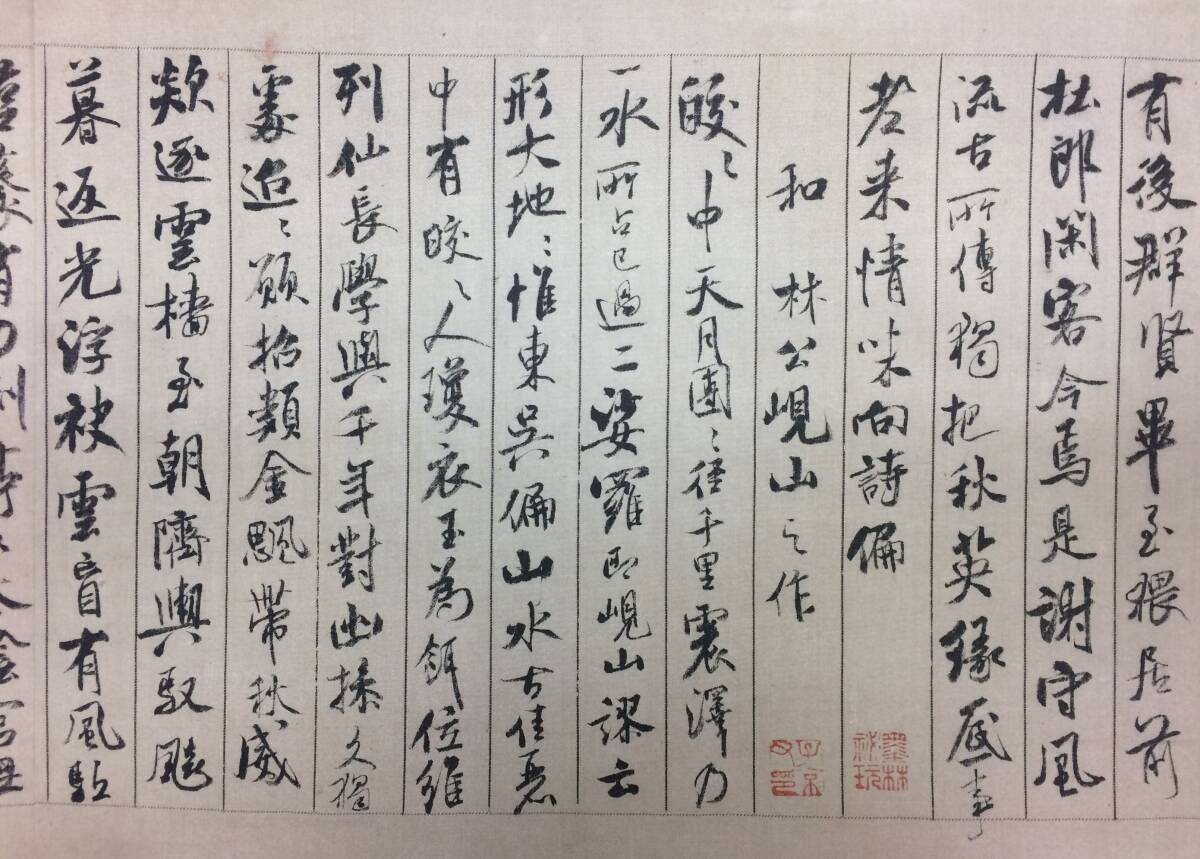 有後群賢畢至猥居前
杜郎閑客今焉是謝守風
流古所傳獨把秋英緣底事
老来情味向詩偏
和林公峴山之作
皎〻中天月團〻徑千里震澤乃
一水所占已過二娑羅即峴山謬云
形大地〻惟東吳偏山水古佳麗
中有皎〻人瓊衣玉為餌位維
列仙長學與千年對幽操久獨
處迢〻願招類金飈帶秋威
欻逐雲檣至朝隮輿馭飈
暮返光浮袂雲盲有風駈
有刀利亭〻太陰宮無
墨林祕玩
子京父印